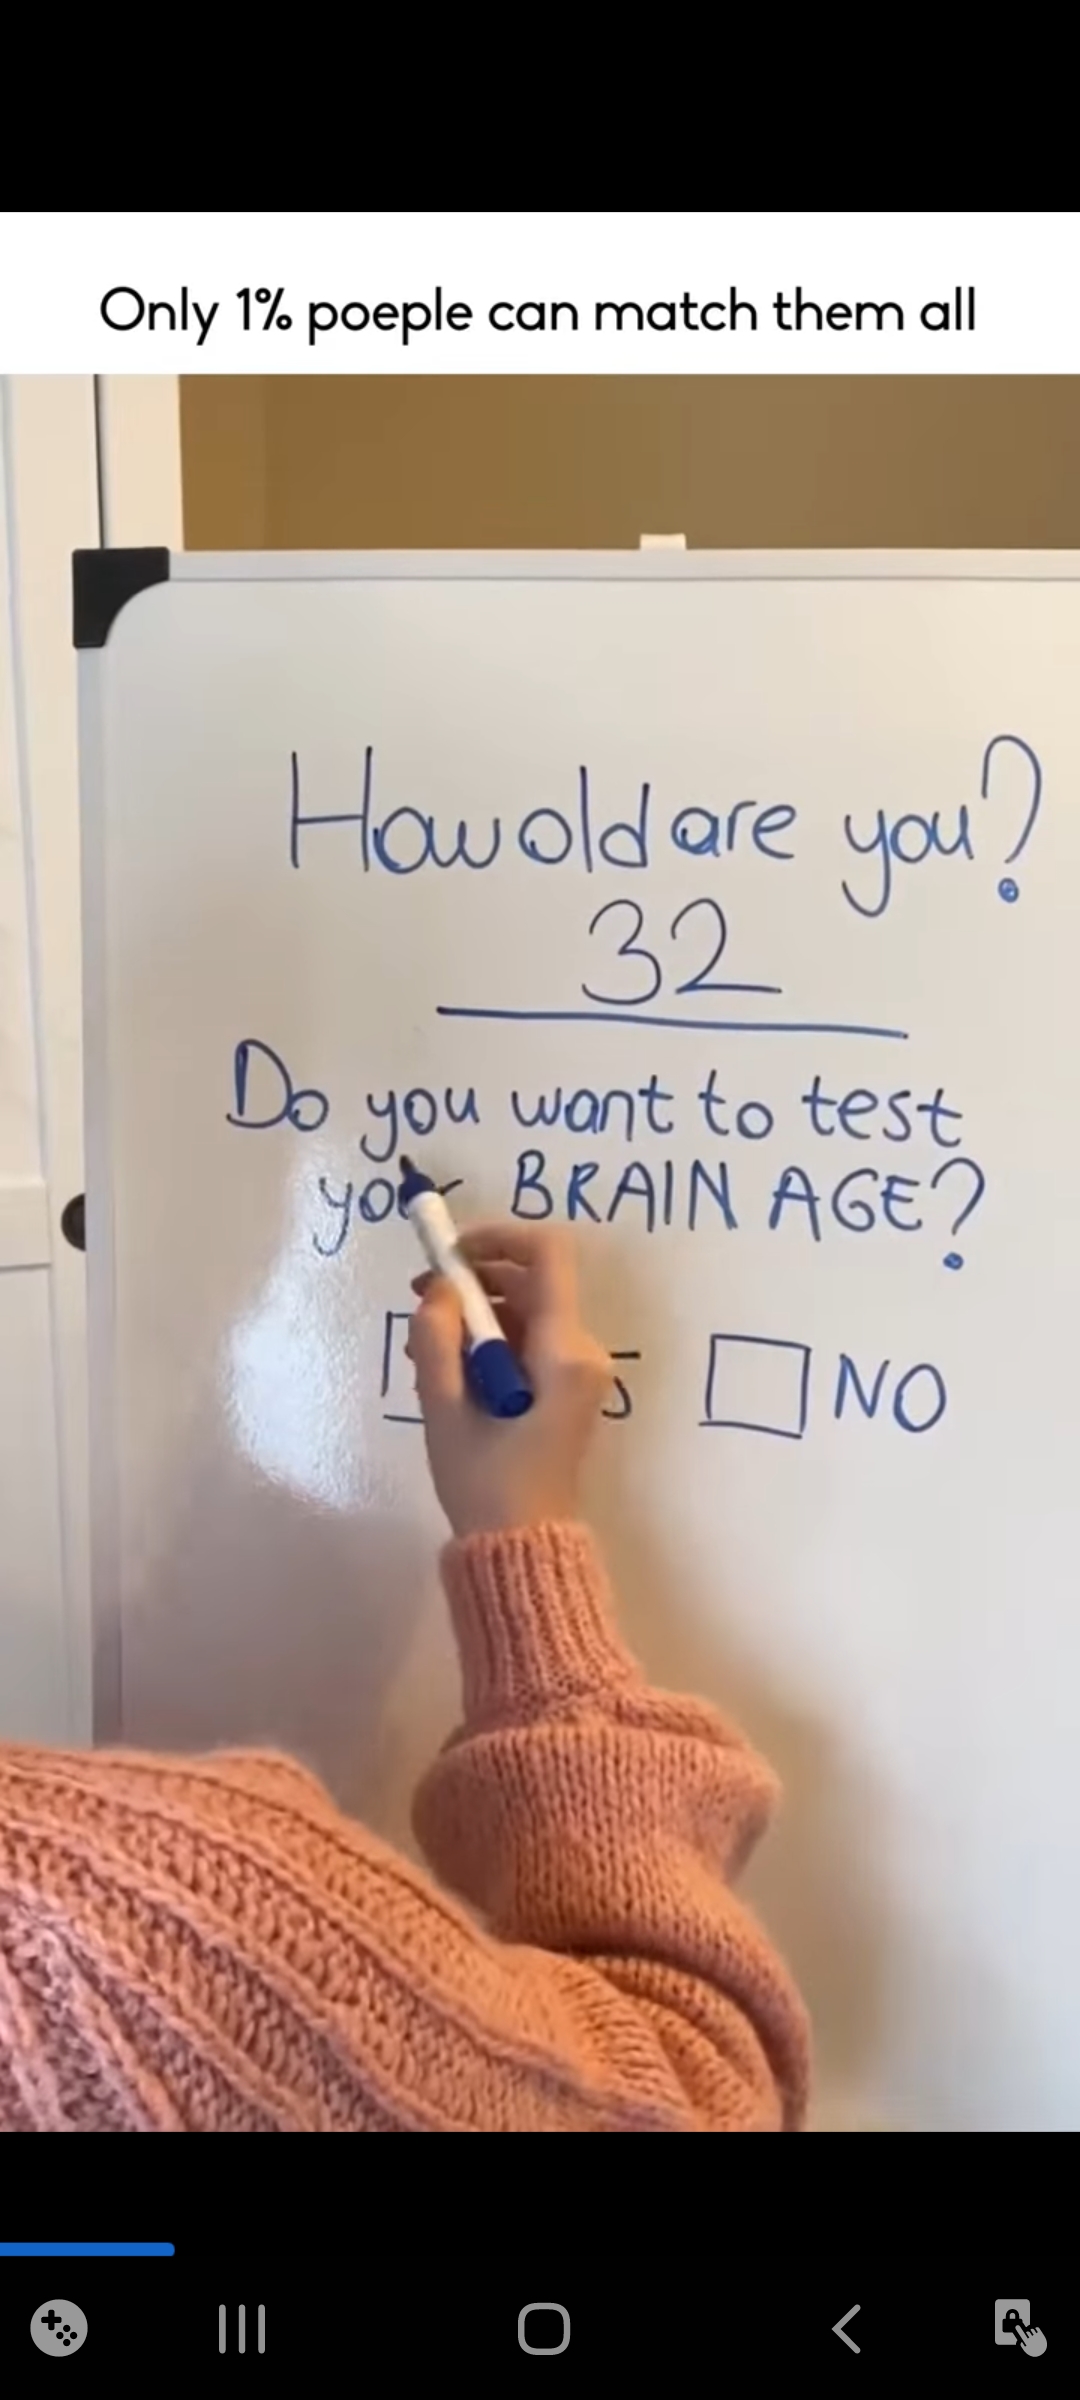 Only 1% poeple can match them all
How old are you?
32
Do you want to test
BRAIN AGE?
NO